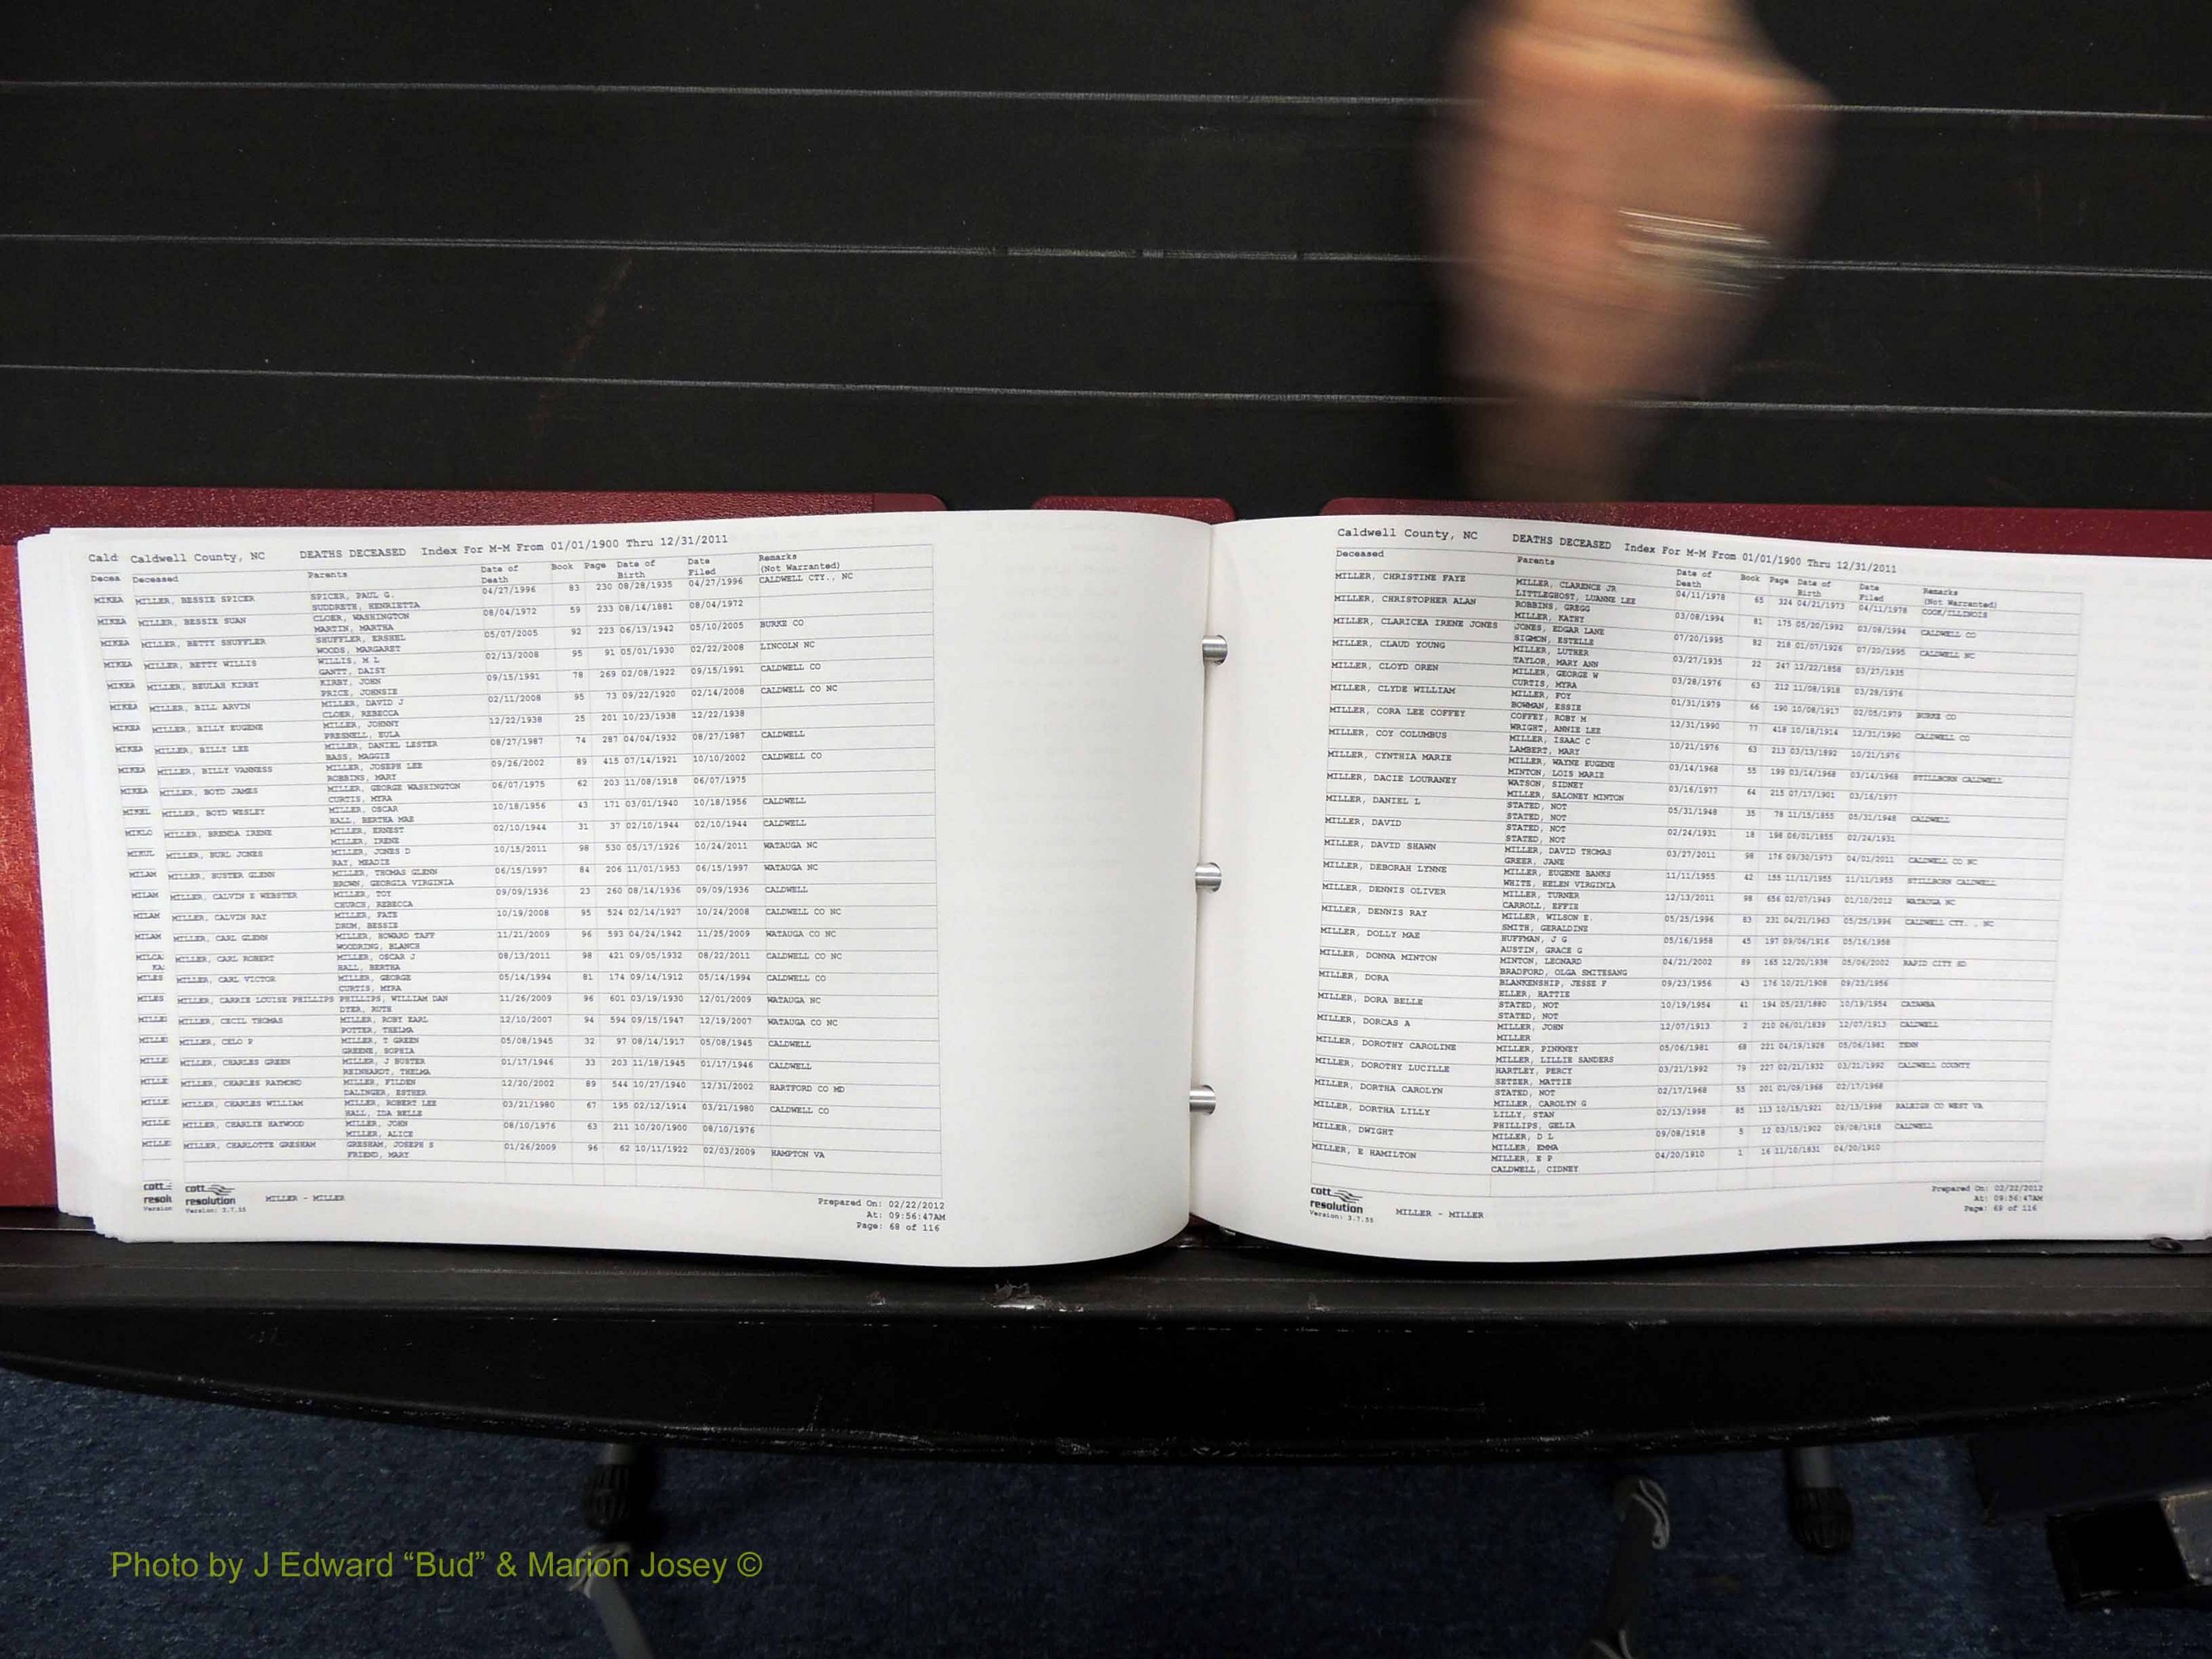 Cald Caldwell County, NC DEATHS DECEASED Index For M-M From 01/01/1900 Thru 12/31/2011
Decea Deceased Parents Date of Death Book Page Date of Birth Date Filed Remarks (Not Warranted)
MIKEA MILLER, BESSIE SPICER SPICER, PAUL G. 04/27/1996 83 230 08/28/1935 04/27/1996 CALDWELL CTY., NC
SUDDRETH, HENRIETTA
MIKEA MILLER, BESSIE SUAN CLOER, WASHINGTON 08/04/1972 59 233 08/14/1881 08/04/1972
MARTIN, MARTHA
MIKEA MILLER, BETTY SHUFFLER SHUFFLER, ERSHEL 05/07/2005 92 223 06/13/1942 05/10/2005 BURKE CO
WOODS, MARGARET
MIKEA MILLER, BETTY WILLIS WILLIS, M L 02/13/2008 95 91 05/01/1930 02/22/2008 LINCOLN NC
GANTT, DAISY
MIKEA MILLER, BEULAH KIRBY KIRBY, JOHN 09/15/1991 78 269 02/08/1922 09/15/1991 CALDWELL CO
PRICE, JOHNSIE
MIKEA MILLER, BILL ARVIN MILLER, DAVID J 02/11/2008 95 73 09/22/1920 02/14/2008 CALDWELL CO NC
CLOER, REBECCA
MIKEA MILLER, BILLY EUGENE MILLER, JOHNNY 12/22/1938 25 201 10/23/1938 12/22/1938
PRESNELL, EULA
MIKEA MILLER, BILLY LEE MILLER, DANIEL LESTER 08/27/1987 74 287 04/04/1932 08/27/1987 CALDWELL
BASS, MAGGIE
MIKEA MILLER, BILLY VANNESS MILLER, JOSEPH LEE 09/26/2002 89 415 07/14/1921 10/10/2002 CALDWELL CO
ROBBINS, MARY
MIKEA MILLER, BOYD JAMES MILLER, GEORGE WASHINGTON 06/07/1975 62 203 11/08/1918 06/07/1975
CURTIS, MYRA
MIKEL MILLER, BOYD WESLEY MILLER, OSCAR 10/18/1956 43 171 03/01/1940 10/18/1956 CALDWELL
HALL, BERTHA MAE
MIKLO MILLER, BRENDA IRENE MILLER, ERNEST 02/10/1944 31 37 02/10/1944 02/10/1944 CALDWELL
MILLER, IRENE
MIKUL MILLER, BURL JONES MILLER, JONES D 10/15/2011 98 530 05/17/1926 10/24/2011 WATAUGA NC
RAY, MEADIE
MILAM MILLER, BUSTER GLENN MILLER, THOMAS GLENN 06/15/1997 84 206 11/01/1953 06/15/1997 WATAUGA NC
BROWN, GEORGIA VIRGINIA
MILAM MILLER, CALVIN E WEBSTER MILLER, TOY 09/09/1936 23 260 08/14/1936 09/09/1936 CALDWELL
CHURCH, REBECCA
MILAM MILLER, CALVIN RAY MILLER, FATE 10/19/2008 95 524 02/14/1927 10/24/2008 CALDWELL CO NC
DRUM, BESSIE
MILAM MILLER, CARL GLENN MILLER, HOWARD TAFF 11/21/2009 96 593 04/24/1942 11/25/2009 WATAUGA CO NC
WOODRING, BLANCH
MILCA MILLER, CARL ROBERT MILLER, OSCAR J 08/13/2011 98 421 09/05/1932 08/22/2011 CALDWELL CO NC
KA HALL, BERTHA
MILES MILLER, CARL VICTOR MILLER, GEORGE 05/14/1994 81 174 09/14/1912 05/14/1994 CALDWELL CO
CURTIS, MYRA
MILES MILLER, CARRIE LOUISE PHILLIPS PHILLIPS, WILLIAM DAN 11/26/2009 96 601 03/19/1930 12/01/2009 WATAUGA NC
DYER, RUTH
MILLE MILLER, CECIL THOMAS MILLER, ROBY EARL 12/10/2007 94 594 09/15/1947 12/19/2007 WATAUGA CO NC
POTTER, THELMA
MILLE MILLER, CELO P MILLER, T GREEN 05/08/1945 32 97 08/14/1917 05/08/1945 CALDWELL
GREENE, SOPHIA
MILLE MILLER, CHARLES GREEN MILLER, J BUSTER 01/17/1946 33 203 11/18/1945 01/17/1946 CALDWELL
REINHARDT, THELMA
MILLE MILLER, CHARLES RAYMOND MILLER, FILDEN 12/20/2002 89 544 10/27/1940 12/31/2002 HARTFORD CO MD
DALINGER, ESTHER
MILLE MILLER, CHARLES WILLIAM MILLER, ROBERT LEE 03/21/1980 67 195 02/12/1914 03/21/1980 CALDWELL CO
HALL, IDA BELLE
MILLE MILLER, CHARLIE HAYWOOD MILLER, JOHN 08/10/1976 63 211 10/20/1900 08/10/1976
MILLER, ALICE
MILLE MILLER, CHARLOTTE GRESHAM GRESHAM, JOSEPH S 01/26/2009 96 62 10/11/1922 02/03/2009 HAMPTON VA
FRIEND, MARY
cott cott
resolu resolution MILLER - MILLER
Version Version: 3.7.55
Prepared On: 02/22/2012
At: 09:56:47AM
Page: 68 of 116
Caldwell County, NC DEATHS DECEASED Index For M-M From 01/01/1900 Thru 12/31/2011
Deceased Parents Date of Death Book Page Date of Birth Date Filed Remarks (Not Warranted)
MILLER, CHRISTINE FAYE MILLER, CLARENCE JR 04/11/1978 65 324 04/21/1973 04/11/1978 COOK/ILLINOIS
LITTLEGHOST, LUANNE LEE
MILLER, CHRISTOPHER ALAN ROBBINS, GREGG 03/08/1994 81 175 05/20/1992 03/08/1994 CALDWELL CO
MILLER, KATHY
MILLER, CLARICEA IRENE JONES JONES, EDGAR LANE 07/20/1995 82 218 01/07/1926 07/20/1995 CALDWELL NC
SIGMON, ESTELLE
MILLER, CLAUD YOUNG MILLER, LUTHER 03/27/1935 22 247 12/22/1858 03/27/1935
TAYLOR, MARY ANN
MILLER, CLOYD OREN MILLER, GEORGE W 03/28/1976 63 212 11/08/1918 03/28/1976
CURTIS, MYRA
MILLER, CLYDE WILLIAM MILLER, FOY 01/31/1979 66 190 10/08/1917 02/05/1979 BURKE CO
BOWMAN, ESSIE
MILLER, CORA LEE COFFEY COFFEY, ROBY M 12/31/1990 77 418 10/18/1914 12/31/1990 CALDWELL CO
WRIGHT, ANNIE LEE
MILLER, COY COLUMBUS MILLER, ISAAC C 10/21/1976 63 213 03/13/1892 10/21/1976
LAMBERT, MARY
MILLER, CYNTHIA MARIE MILLER, WAYNE EUGENE 03/14/1968 55 199 03/14/1968 03/14/1968 STILLBORN CALDWELL
MINTON, LOIS MARIE
MILLER, DACIE LOURANEY WATSON, SIDNEY 03/16/1977 64 215 07/17/1901 03/16/1977
MILLER, SALONEY MINTON
MILLER, DANIEL L STATED, NOT 05/31/1948 35 78 11/15/1855 05/31/1948 CALDWELL
STATED, NOT
MILLER, DAVID STATED, NOT 02/24/1931 18 198 06/01/1855 02/24/1931
STATED, NOT
MILLER, DAVID SHAWN MILLER, DAVID THOMAS 03/27/2011 98 176 09/30/1973 04/01/2011 CALDWELL CO NC
GREER, JANE
MILLER, DEBORAH LYNNE MILLER, EUGENE BANKS 11/11/1955 42 155 11/11/1955 11/11/1955 STILLBORN CALDWELL
WHITE, HELEN VIRGINIA
MILLER, DENNIS OLIVER MILLER, TURNER 12/13/2011 98 656 02/07/1949 01/10/2012 WATAUGA NC
CARROLL, EFFIE
MILLER, DENNIS RAY MILLER, WILSON E. 05/25/1996 83 231 04/21/1963 05/25/1996 CALDWELL CTY. , NC
SMITH, GERALDINE
MILLER, DOLLY MAE HUFFMAN, J G 05/16/1958 45 197 09/06/1916 05/16/1958
AUSTIN, GRACE G
MILLER, DONNA MINTON MINTON, LEONARD 04/21/2002 89 165 12/20/1938 05/06/2002 RAPID CITY SD
BRADFORD, OLGA SMITESANG
MILLER, DORA BLANKENSHIP, JESSE F 09/23/1956 43 176 10/21/1908 09/23/1956
ELLER, HATTIE
MILLER, DORA BELLE STATED, NOT 10/19/1954 41 194 05/23/1880 10/19/1954 CATAWBA
STATED, NOT
MILLER, DORCAS A MILLER, JOHN 12/07/1913 2 210 06/01/1839 12/07/1913 CALDWELL
MILLER
MILLER, DOROTHY CAROLINE MILLER, PINKNEY 05/06/1981 68 221 04/19/1928 05/06/1981 TENN
MILLER, LILLIE SANDERS
MILLER, DOROTHY LUCILLE HARTLEY, PERCY 03/21/1992 79 227 02/21/1932 03/21/1992 CALDWELL COUNTY
SETZER, MATTIE
MILLER, DORTHA CAROLYN STATED, NOT 02/17/1968 55 201 01/09/1968 02/17/1968
MILLER, CAROLYN G
MILLER, DORTHA LILLY LILLY, STAN 02/13/1998 85 113 10/15/1921 02/13/1998 RALEIGH CO WEST VA
PHILLIPS, GELIA
MILLER, DWIGHT MILLER, D L 09/08/1918 5 12 03/15/1902 09/08/1918 CALDWELL
MILLER, EMMA
MILLER, E HAMILTON MILLER, E P 04/20/1910 1 16 11/10/1831 04/20/1910
CALDWELL, CIDNEY
cott
resolution MILLER - MILLER
Version: 3.7.55
Prepared On: 02/22/2012
At: 09:56:47AM
Page: 69 of 116
Photo by J Edward “Bud” & Marion Josey ©